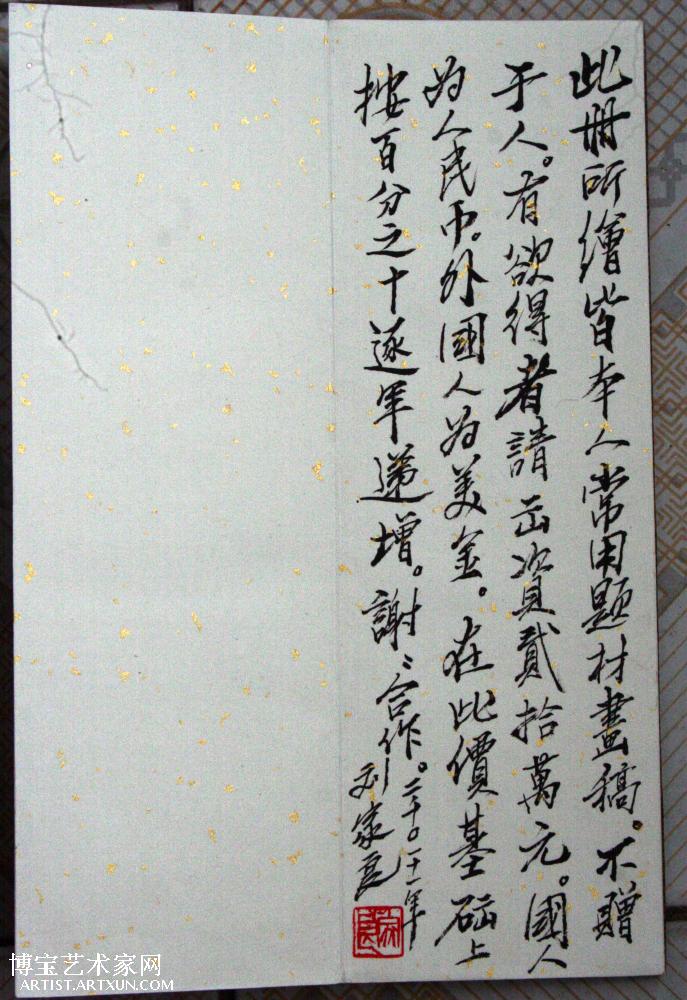 此册所繪皆本人常用题材畫稿。不贈
于人。有欲得者請出資貳拾萬元。國人
为人民币。外國人为美金。在此價基础上
按百分之十逐年递增。謝〻合作。
二千〇一十一年
刘家良
博宝艺术家网
ARTIST.ARTXUN.COM